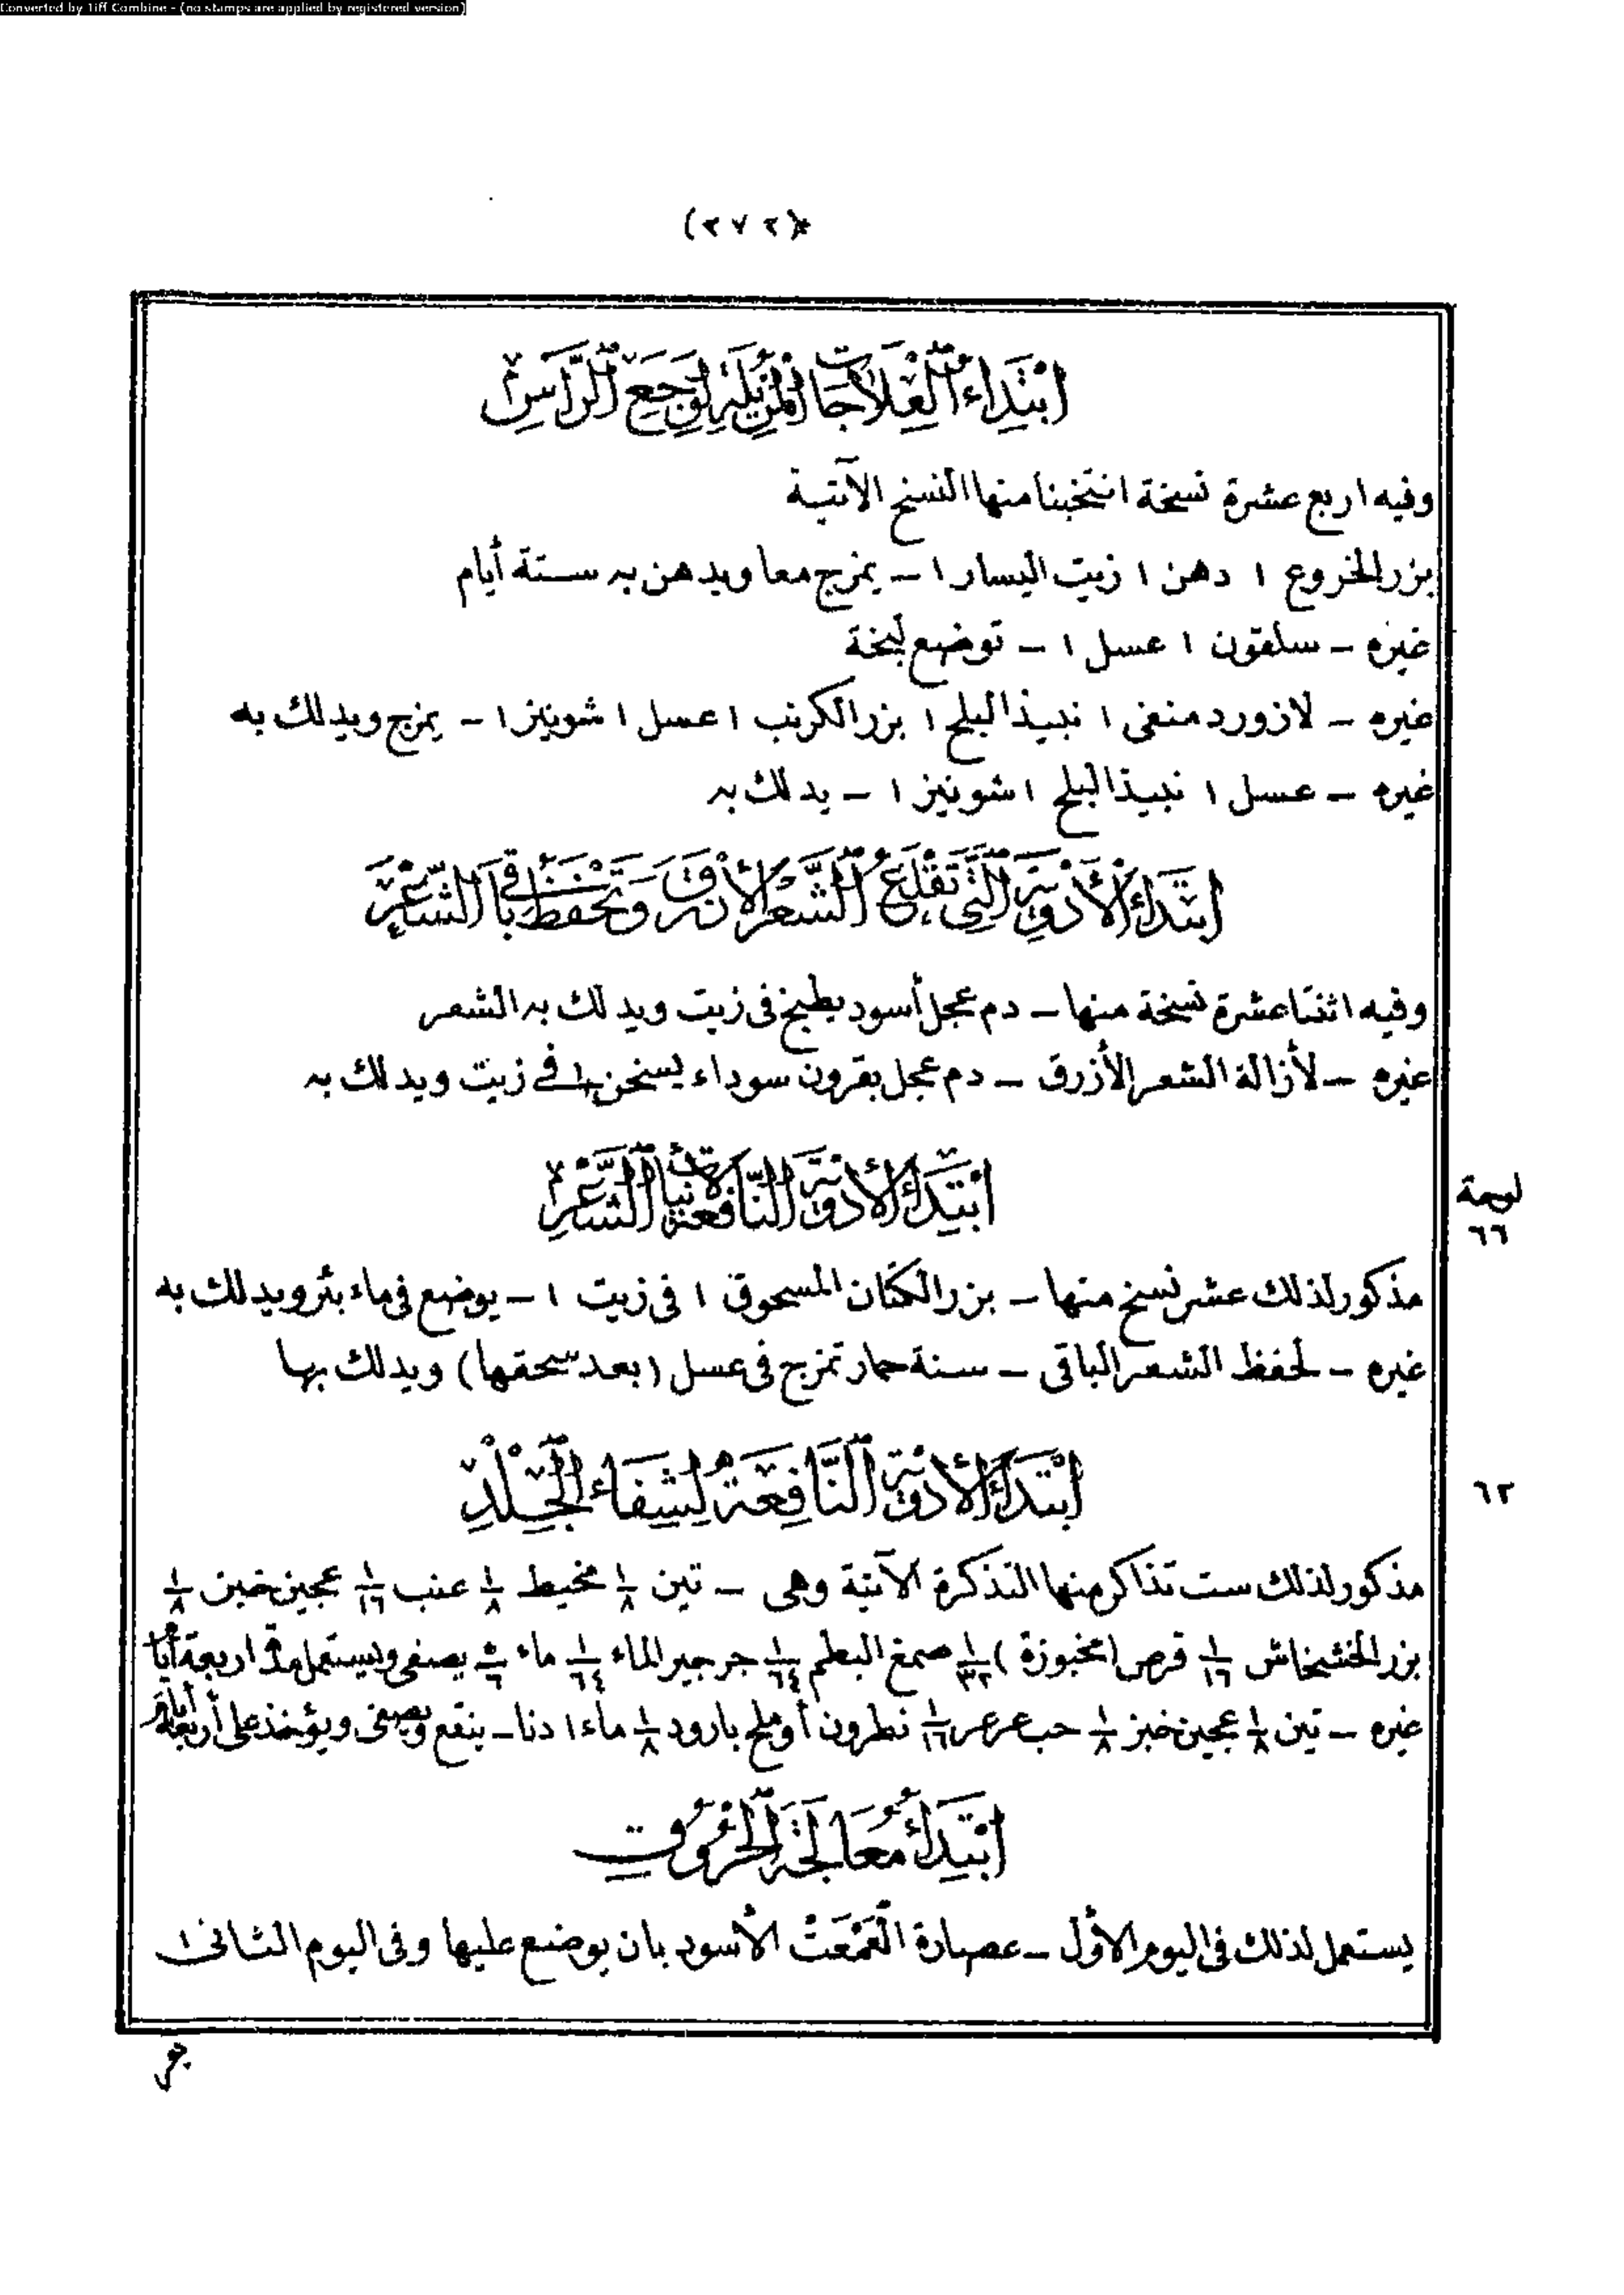 Converted by Tiff Combine - (no stamps are applied by registered version)
(٢٧٢)
اِبْتِدَاءُ الْعِلَاجَاتِ الْمُزِيلَةِ لِوَجَعِ الرَّأسِ
وفيه اربع عشرة نسخة انتخبنا منها النسخ الآتية
بزر الخروع ١ دهن ١ زيت اليسار ١ – يمزج معا ويدهن به ستة أيام
غيره – سلقون ١ عسل ١ – توضع لبخة
غيره – لازورد منقى ١ نبيذ البلح ١ بزر الكرنب ١ عسل ١ شونيز ١ – يمزج ويدلك به
غيره – عسل ١ نبيذ البلح ١ شونيز ١ – يدلك به
اِبْتِدَاءُ الأَدْوِيَةِ الَّتِي تَقْلَعُ الشَّعْرَ الأزرق وَتَحْفَظُ بَاقِي الشَّعْرِ
وفيه اثنتا عشرة نسخة منها – دم عجل أسود يطبخ في زيت ويدلك به الشعر
غيره – لأزالة الشعر الأزرق – دم عجل بقرون سوداء يسخن في زيت ويدلك به
اِبْتِدَاءُ الأَدْوِيَةِ النَّافِعَةِ لِإنْبَاتِ الشَّعْرِ
لوحة
٦٦
مذكور لذلك عشر نسخ منها – بزر الكتان المسحوق ١ في زيت ١ – يوضع في ماء بئر ويدلك به
غيره – لحفظ الشعر الباقى – سنة حمار تمزج في عسل (بعد سحقها) ويدلك بها
اِبْتِدَاءُ الأَدْوِيَةِ النَّافِعَةِ لِشِفَاءِ الْجِلْدِ
٦٢
مذكور لذلك ست تذاكر منها التذكرة الآتية وهى – تين ١/٨ مخيط ١/٨ عنب ١/١٦ عجين خبز ١/٨
بزر الخشخاش ١/١٦ قرص (مخبوزة) ١/٣٢ صمغ البطم ١/٦٤ جرجير الماء ١/٦٤ ماء ٥/٦ يصفى ويستعمل مدة اربعة أيام
غيره – تين ١/٨ عجين خبز ١/٨ حب عرعر ١/١٦ نطرون أو ملح بارود ١/٨ ماء ١ دنا – ينقع ويصفى ويؤخذ على أربعة أيام
اِبْتِدَاءُ مُعَالَجَةِ الْحُرُوقِ
يستعمل لذلك فى اليوم الأول – عصارة الأسود بان يوضع عليها وفى اليوم الثانى